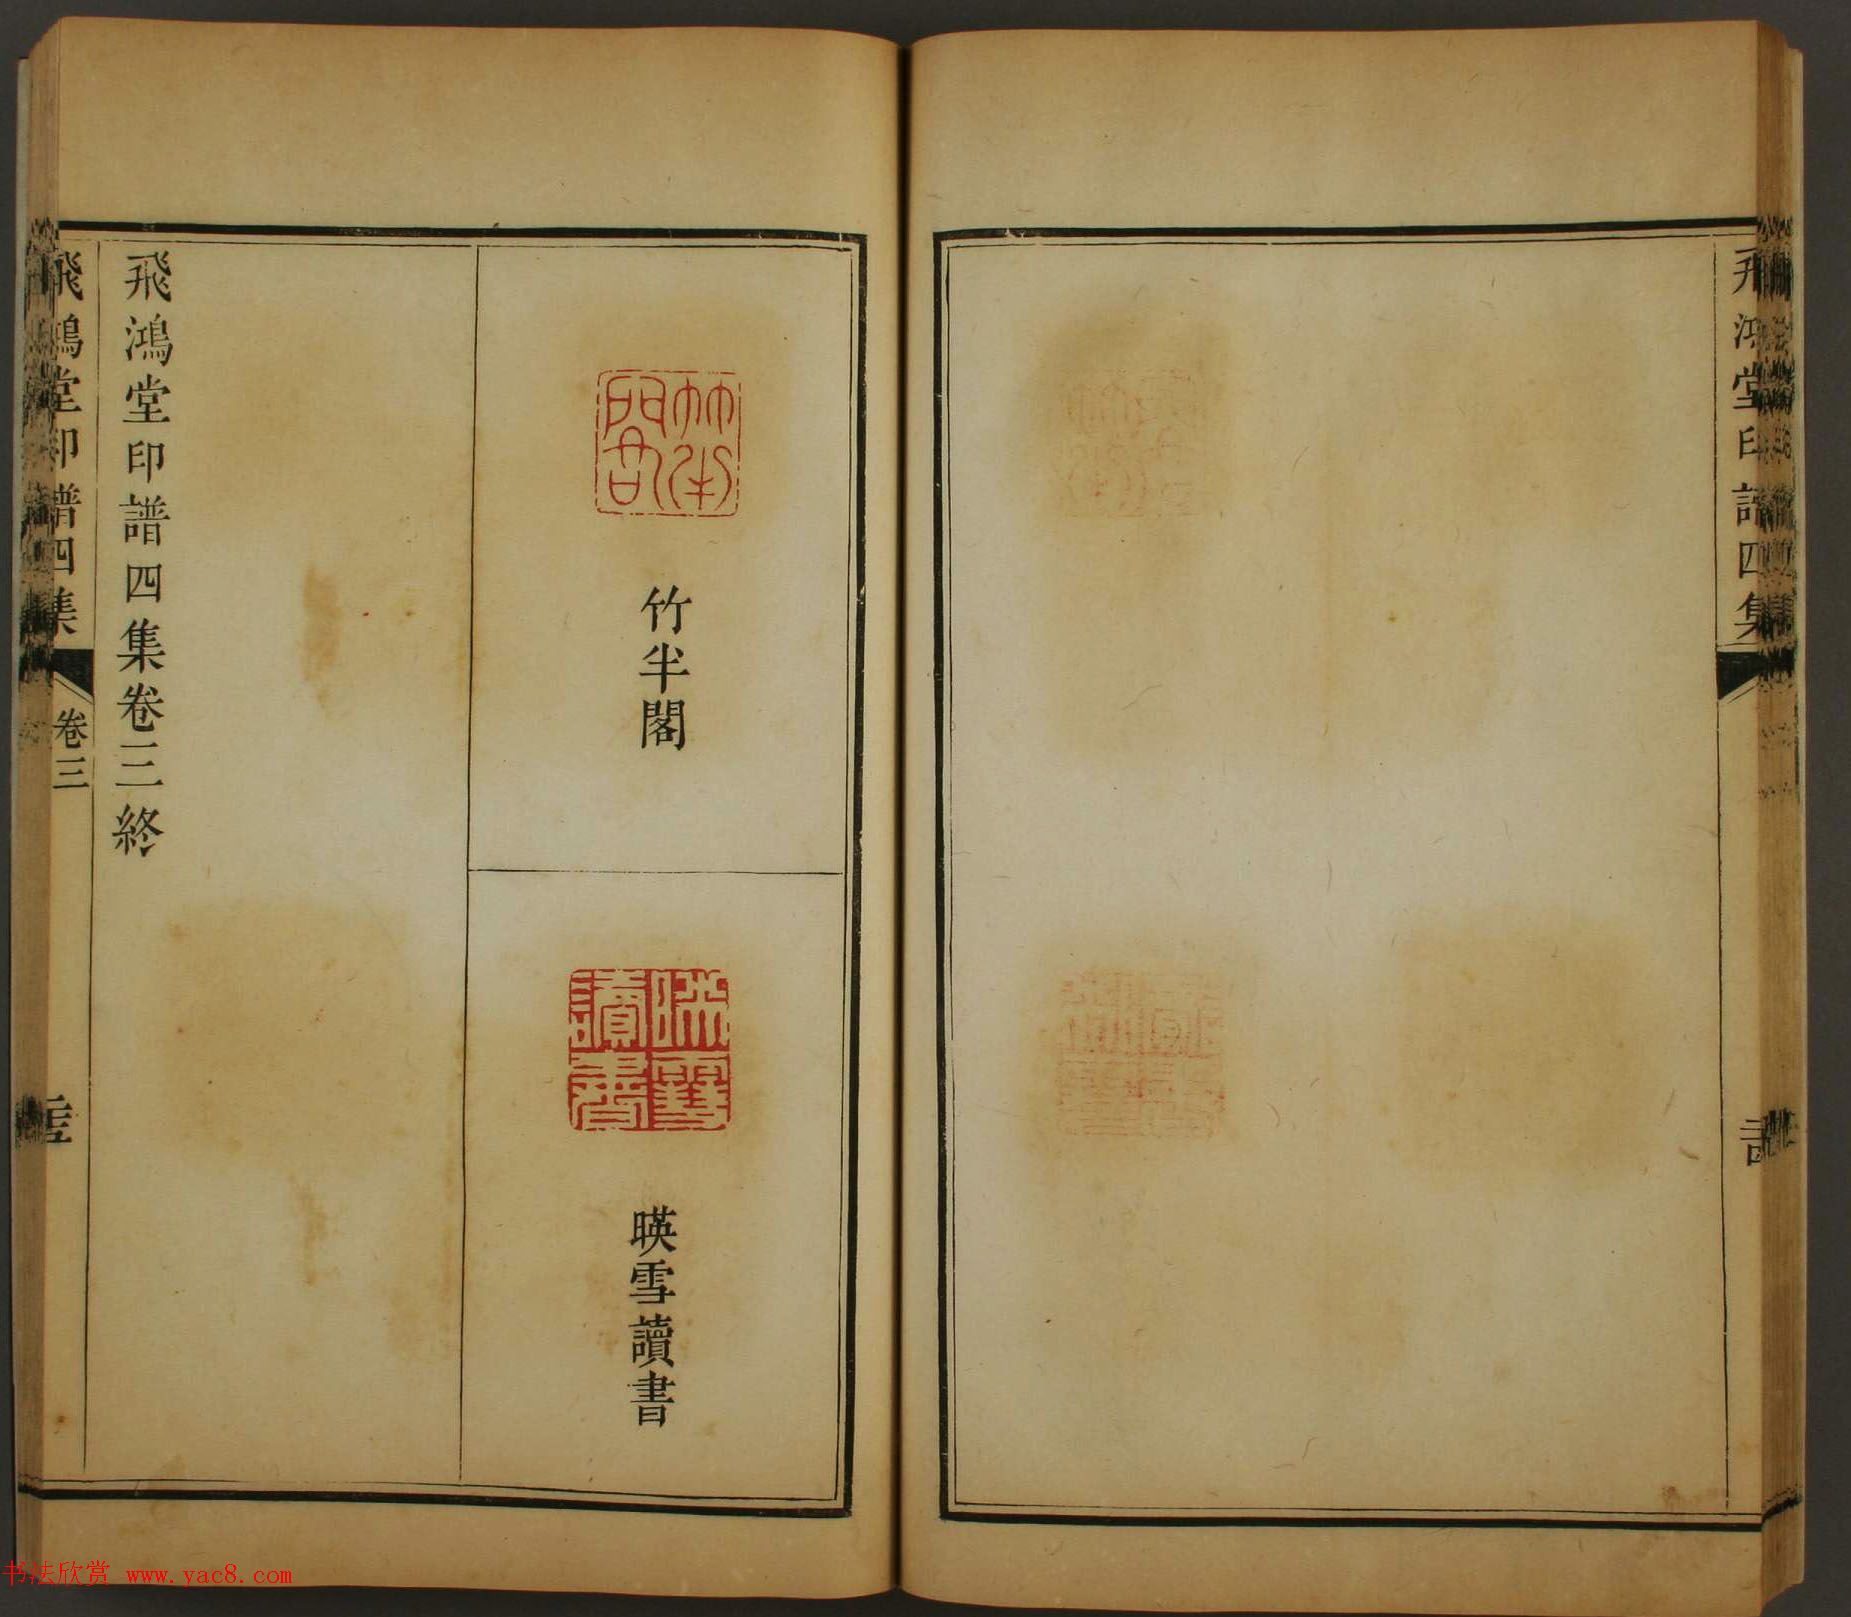 飛鴻堂印譜四集
竹半閣
竹半閣
暎雪讀書
暎雪讀書
飛鴻堂印譜四集卷三終
飛鴻堂印譜四集
卷三
书法欣赏 www.yac8.com